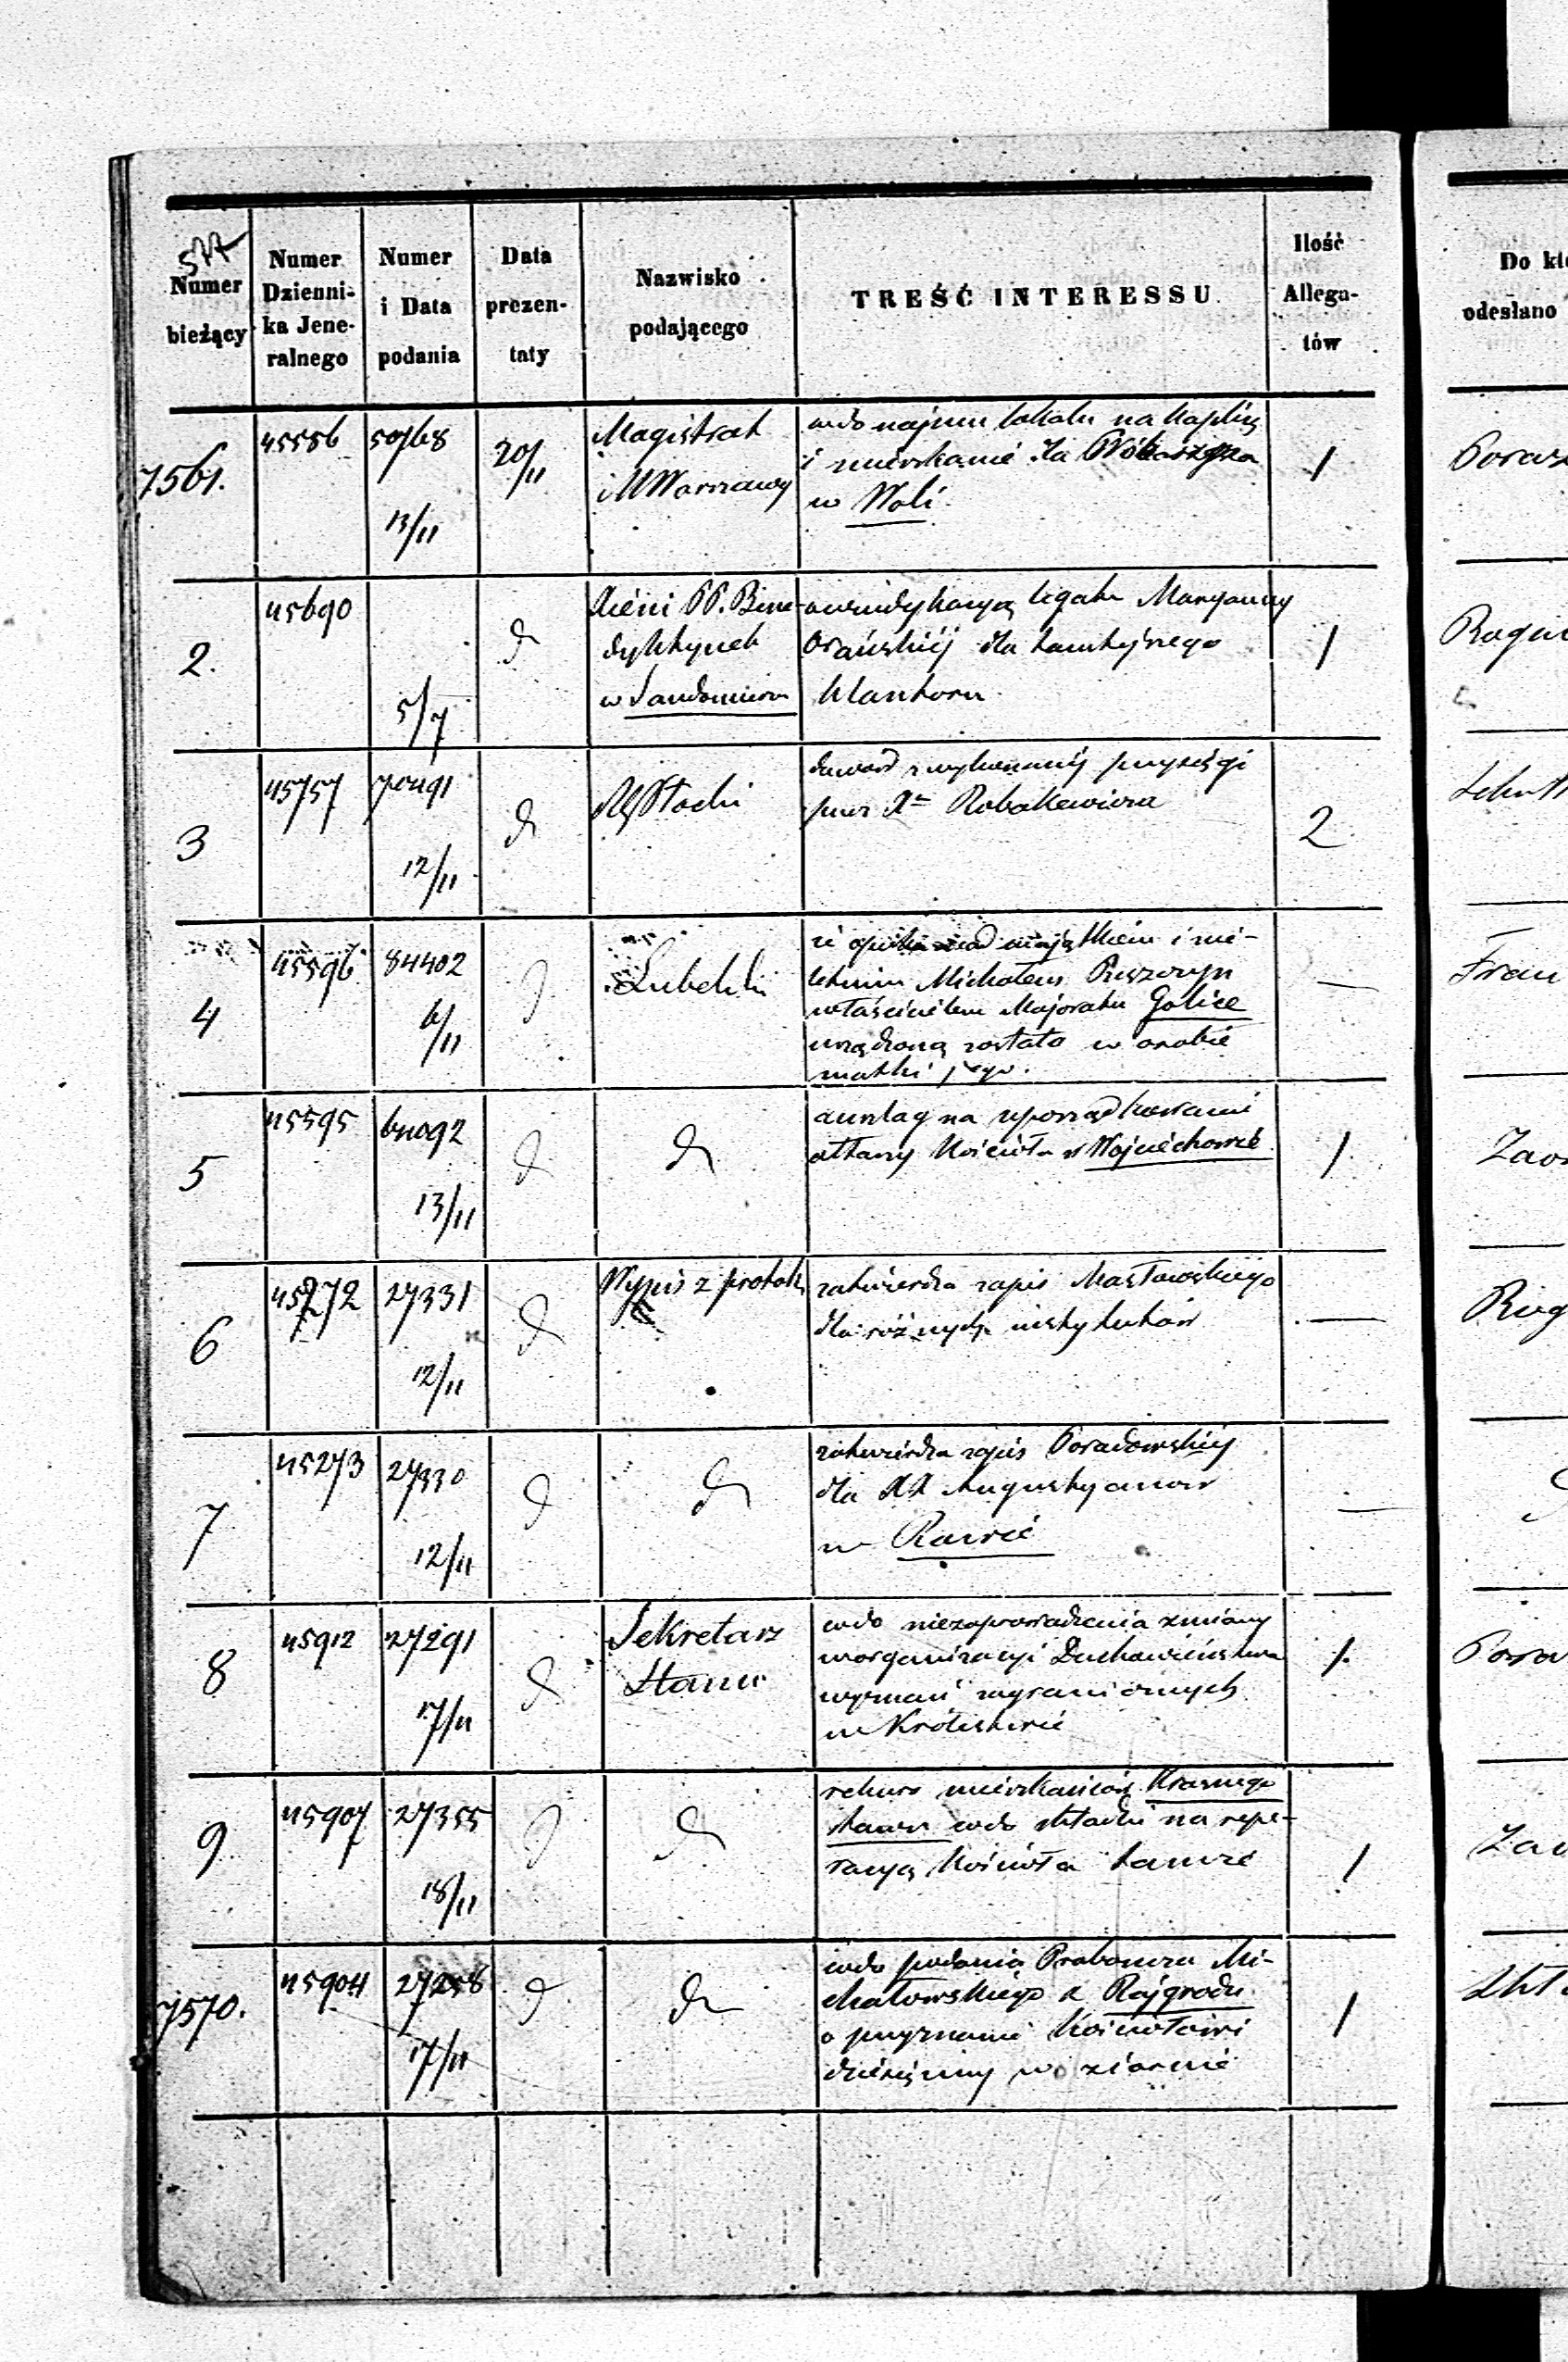 577
Numer bieżący
Numer Dzienni-
ka Jene-
ralnego
Numer
i Data
podania
Data
prezen-
taty
Nazwisko
podającego
TREŚĆ INTERESSU
Ilość
Allega-
tów
Do któ
odesłano
7561.
45586
50768
13/11
20/11
Magistrat
MWarszawy
wdo najmu lokalu na kaplicę
i mieszkanie dla
w Woli
1
2.
45690
5/7
d
Xieni PP. Bene-
dyktynek
w Sandomierzu
legatu Maryanny
dla tamtejszego
klasztoru
1
3
45757
70491
12/11
d
RgPłocki
dowód z wykonanej przysięgi
przez Xa Robakiewicza
2
4
45596
84402
6/11
d
Lubelski
iż opieka nad majątkiem i nie-
letnim Michałem
właścicielem Majoratu Golice
urządzoną została w osobie
matki jego.
—
5
45595
13/11
d
d
anszlag na uporządkowanie
Kościoła w Wojciechowie
1
6
45272
27331
12/11
d
Wypis z protok
zatwierdza zapis Masłowskiego
dla różnych instytutów
—
7
45273
27330
12/11
d
d
zatwierdza zapis Poradowskiej
dla XX Augustyanów
w Rawie
—
8
45912
27291
17/11
d
Sekretarz
Stanu
wdo niezaprowadzenia zmiany
w organizacyi Duchowieństwa
wyznań zagranicznych
w Królestwie
1.
9
45907
27355
18/11
d
d
rekurs mieszkańców Krasnego
stawu wdo składki na repe-
racyą Kościoła tamże
1
7570.
45904
27258
17/11
d
d
wdo podania Proboszcza Mi-
chałowskiego z Rajgrodu
o przyznanie Kościołowi
dziesięciny w ziarnie
1